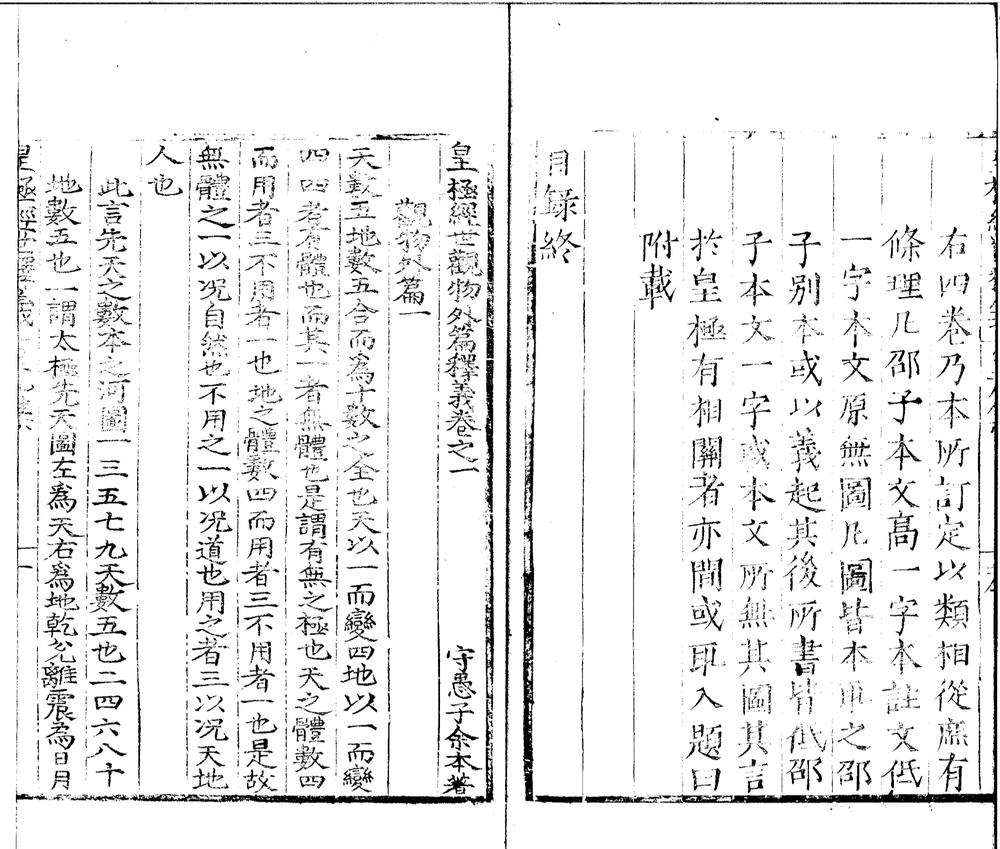 右四卷乃本所訂定以類相從庶有
條理凡邵子本文高一字本註文低
一字本文原無圖凡圖皆本取之邵
子別本或以義起其後所書皆低邵
子本文一字或本文所無其圖其言
於皇極有相關者亦間或取入題曰
附載
目錄終
皇極經世觀物外篇釋義卷之一
守愚子余本著
觀物外篇一
天數五地數五合而爲十數之全也天以一而變四地以一而變
四四者有體也而其一者無體也是謂有無之極也天之體數四
而用者三不用者一也地之體數四而用者三不用者一也是故
無體之一以况自然也不用之一以况道也用之者三以况天地
人也
此言先天之數本之河圖一三五七九天數五也二四六八十
地數五也一謂太極先天圖左爲天右爲地乾兌離震為日月